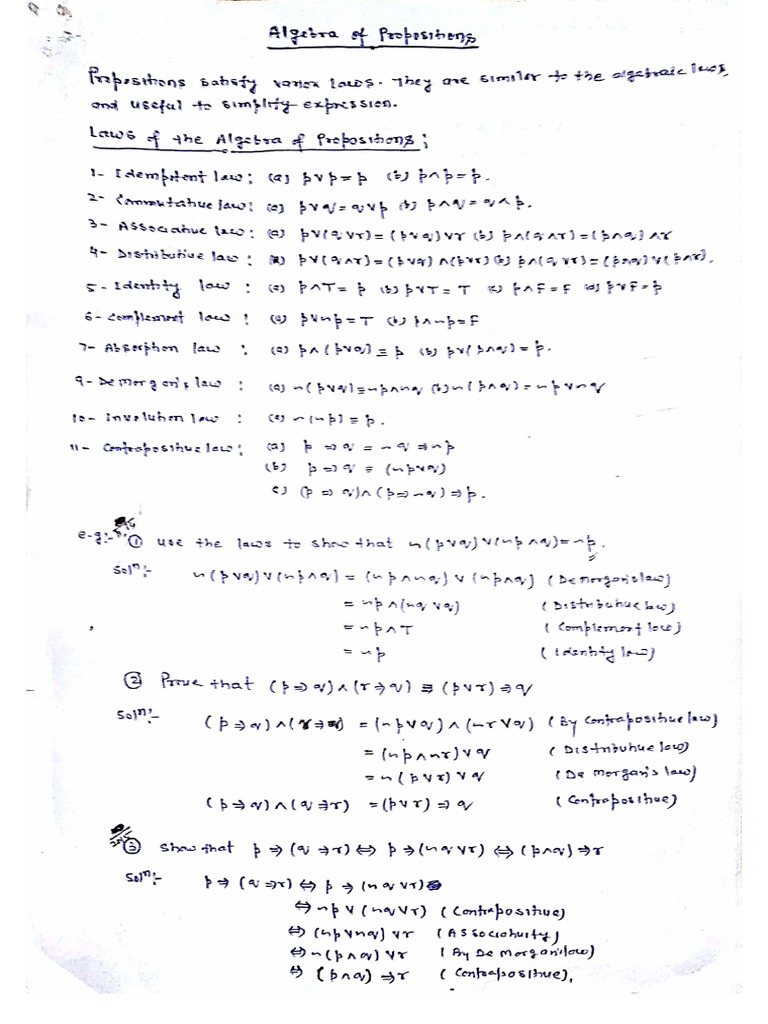 Algebra of Propositions
Propositions satisfy variox laws. They are similar to the algebraic laws,
and useful to simplify expression.
Laws of the Algebra of Propositions;
1- Idempotent law: (a) p∨p=p (b) p∧p=p.
2- Commutative law: (a) p∨q=q∨p (b) p∧q=q∧p.
3- Associative law: (a) p∨(q∨r)=(p∨q)∨r (b) p∧(q∧r)=(p∧q)∧r
4- Distributive law: (a) p∨(q∧r)=(p∨q)∧(p∨r) (b) p∧(q∨r)=(p∧q)∨(p∧r).
5- Identity law: (a) p∧T=p (b) p∨T=T (c) p∧F=F (d) p∨F=p
6- Complement law: (a) p∨~p=T (b) p∧~p=F
7- Absorption law: (a) p∧(p∨q)≡p (b) p∨(p∧q)=p.
9- De Morgan's law: (a) ~(p∨q)≡~p∧~q (b) ~(p∧q)=~p∨~q
10- Involution law: (a) ~(~p)≡p.
11- Contrapositive law: (a) p⇒q=~q⇒~p
(b) p⇒q≡(~p∨q)
c) (p⇒q)∧(p⇒~q)⇒p.
e-g:- ① use the laws to show that ~(p∨q)∨(~p∧q)=~p.
Solⁿ:- ~(p∨q)∨(~p∧q)=(~p∧~q)∨(~p∧q) (De Morgan's law)
=~p∧(~q∨q) (Distributive law)
=~p∧T (Complement law)
=~p (Identity law)
② Prove that (p⇒q)∧(r⇒q)≡(p∨r)⇒q
Solⁿ:- (p⇒q)∧(r⇒q)=(~p∨q)∧(~r∨q) (By Contrapositive law)
=(~p∧~r)∨q (Distributive law)
=~(p∨r)∨q (De Morgan's law)
(p⇒q)∧(q⇒r)=(p∨r)⇒q (Contrapositive)
2015 ③ Show that p⇒(q⇒r)⇔p⇒(~q∨r)⇔(p∧q)⇒r
Solⁿ:- p⇒(q⇒r)⇔p⇒(~q∨r)
⇔~p∨(~q∨r) (Contrapositive)
⇔(~p∨~q)∨r (Associativity)
⇔~(p∧q)∨r (By De Morgan's law)
⇔(p∧q)⇒r (Contrapositive),